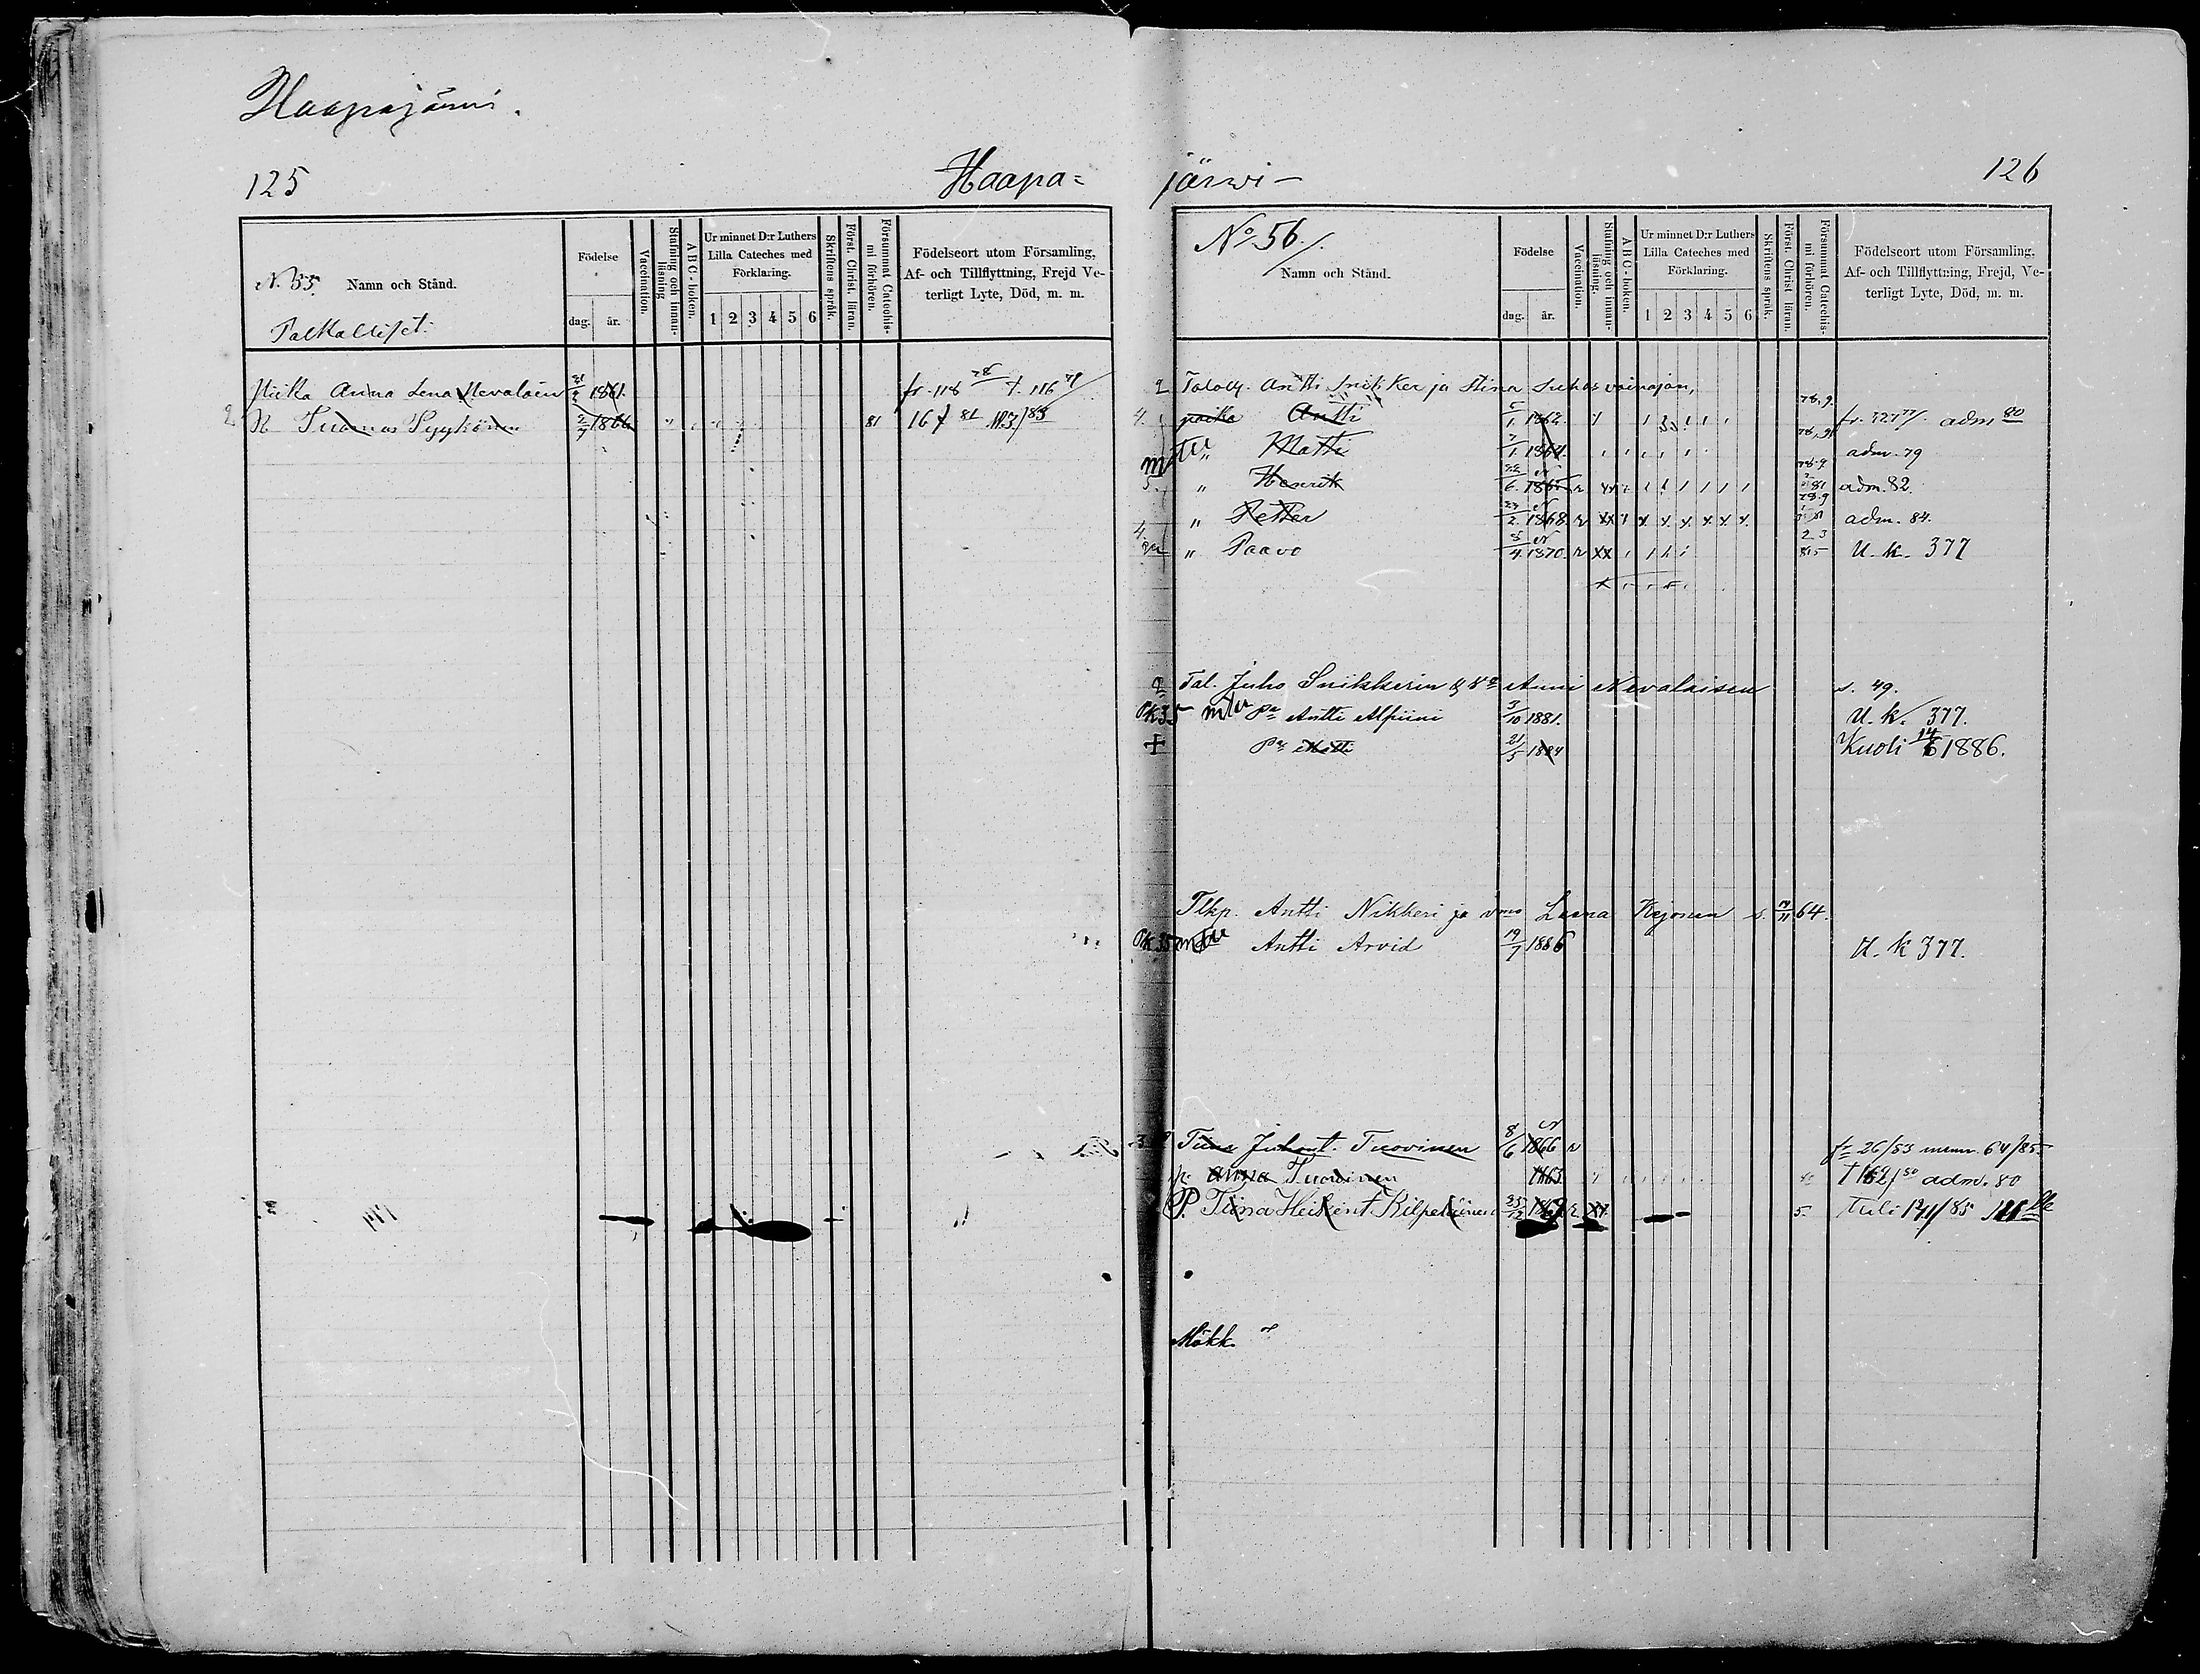 Haapajärvi.
125
Haapa=
N. 55.
Namn och Stånd.
Palkalliset:
Födelse
dag. år.
Vaccination.
Stafning och innanläsning
ABC-boken.
Ur minnet D:r Luthers Lilla Cateches med Förklaring.
1 2 3 4 5 6
Skriftens språk.
Först. Christ. läran.
Försummat Catechismi förhören.
Födelseort utom Församling,
Af- och Tillflyttning, Frejd Ve-
terligt Lyte, Död, m. m.
Piika Anna Lena Nevalain 1861. fr. 118 78 t. 116 79
R Tuomas Pyykönen 1866 81 167 81
järwi-
126
No 56.
Namn och Stånd.
Födelse
dag. år.
Vaccination.
Stafning och innanläsning.
ABC-boken.
Ur minnet D:r Luthers Lilla Cateches med Förklaring.
1 2 3 4 5 6
Skriftens språk.
Först. Christ. läran.
Försummat Catechismi förhören.
Födelseort utom Församling,
Af- och Tillflyttning, Frejd, Ve-
terligt Lyte, Död, m. m.
Antti Snikker ja Stina
poika Antti 1862. adm 80
" Matti 1864. adm. 79
" Henrik 1865 adm. 82.
" Petter 1868 adm. 84.
" Paavo 8/4 1870. U. k. 377
Tal. Juho Snikkerin & Anni Nevalaisen s. 49.
Antti Alpiini 3/10 1881. U. k. 377.
+ Matti 21/5 1884 Kuoli 14/6 1886.
Tlkp. Antti Nikkeri ja Leena Kejonen s. 64.
Antti Arvid 19/7 1886 U. k 377.
Tiina Juhont. Tuovinen 8/6 1866
p. Anna Tuovinen 1863 adm. 80
P. Tiina Heikint. Kilpeläinen tuli
Mökk